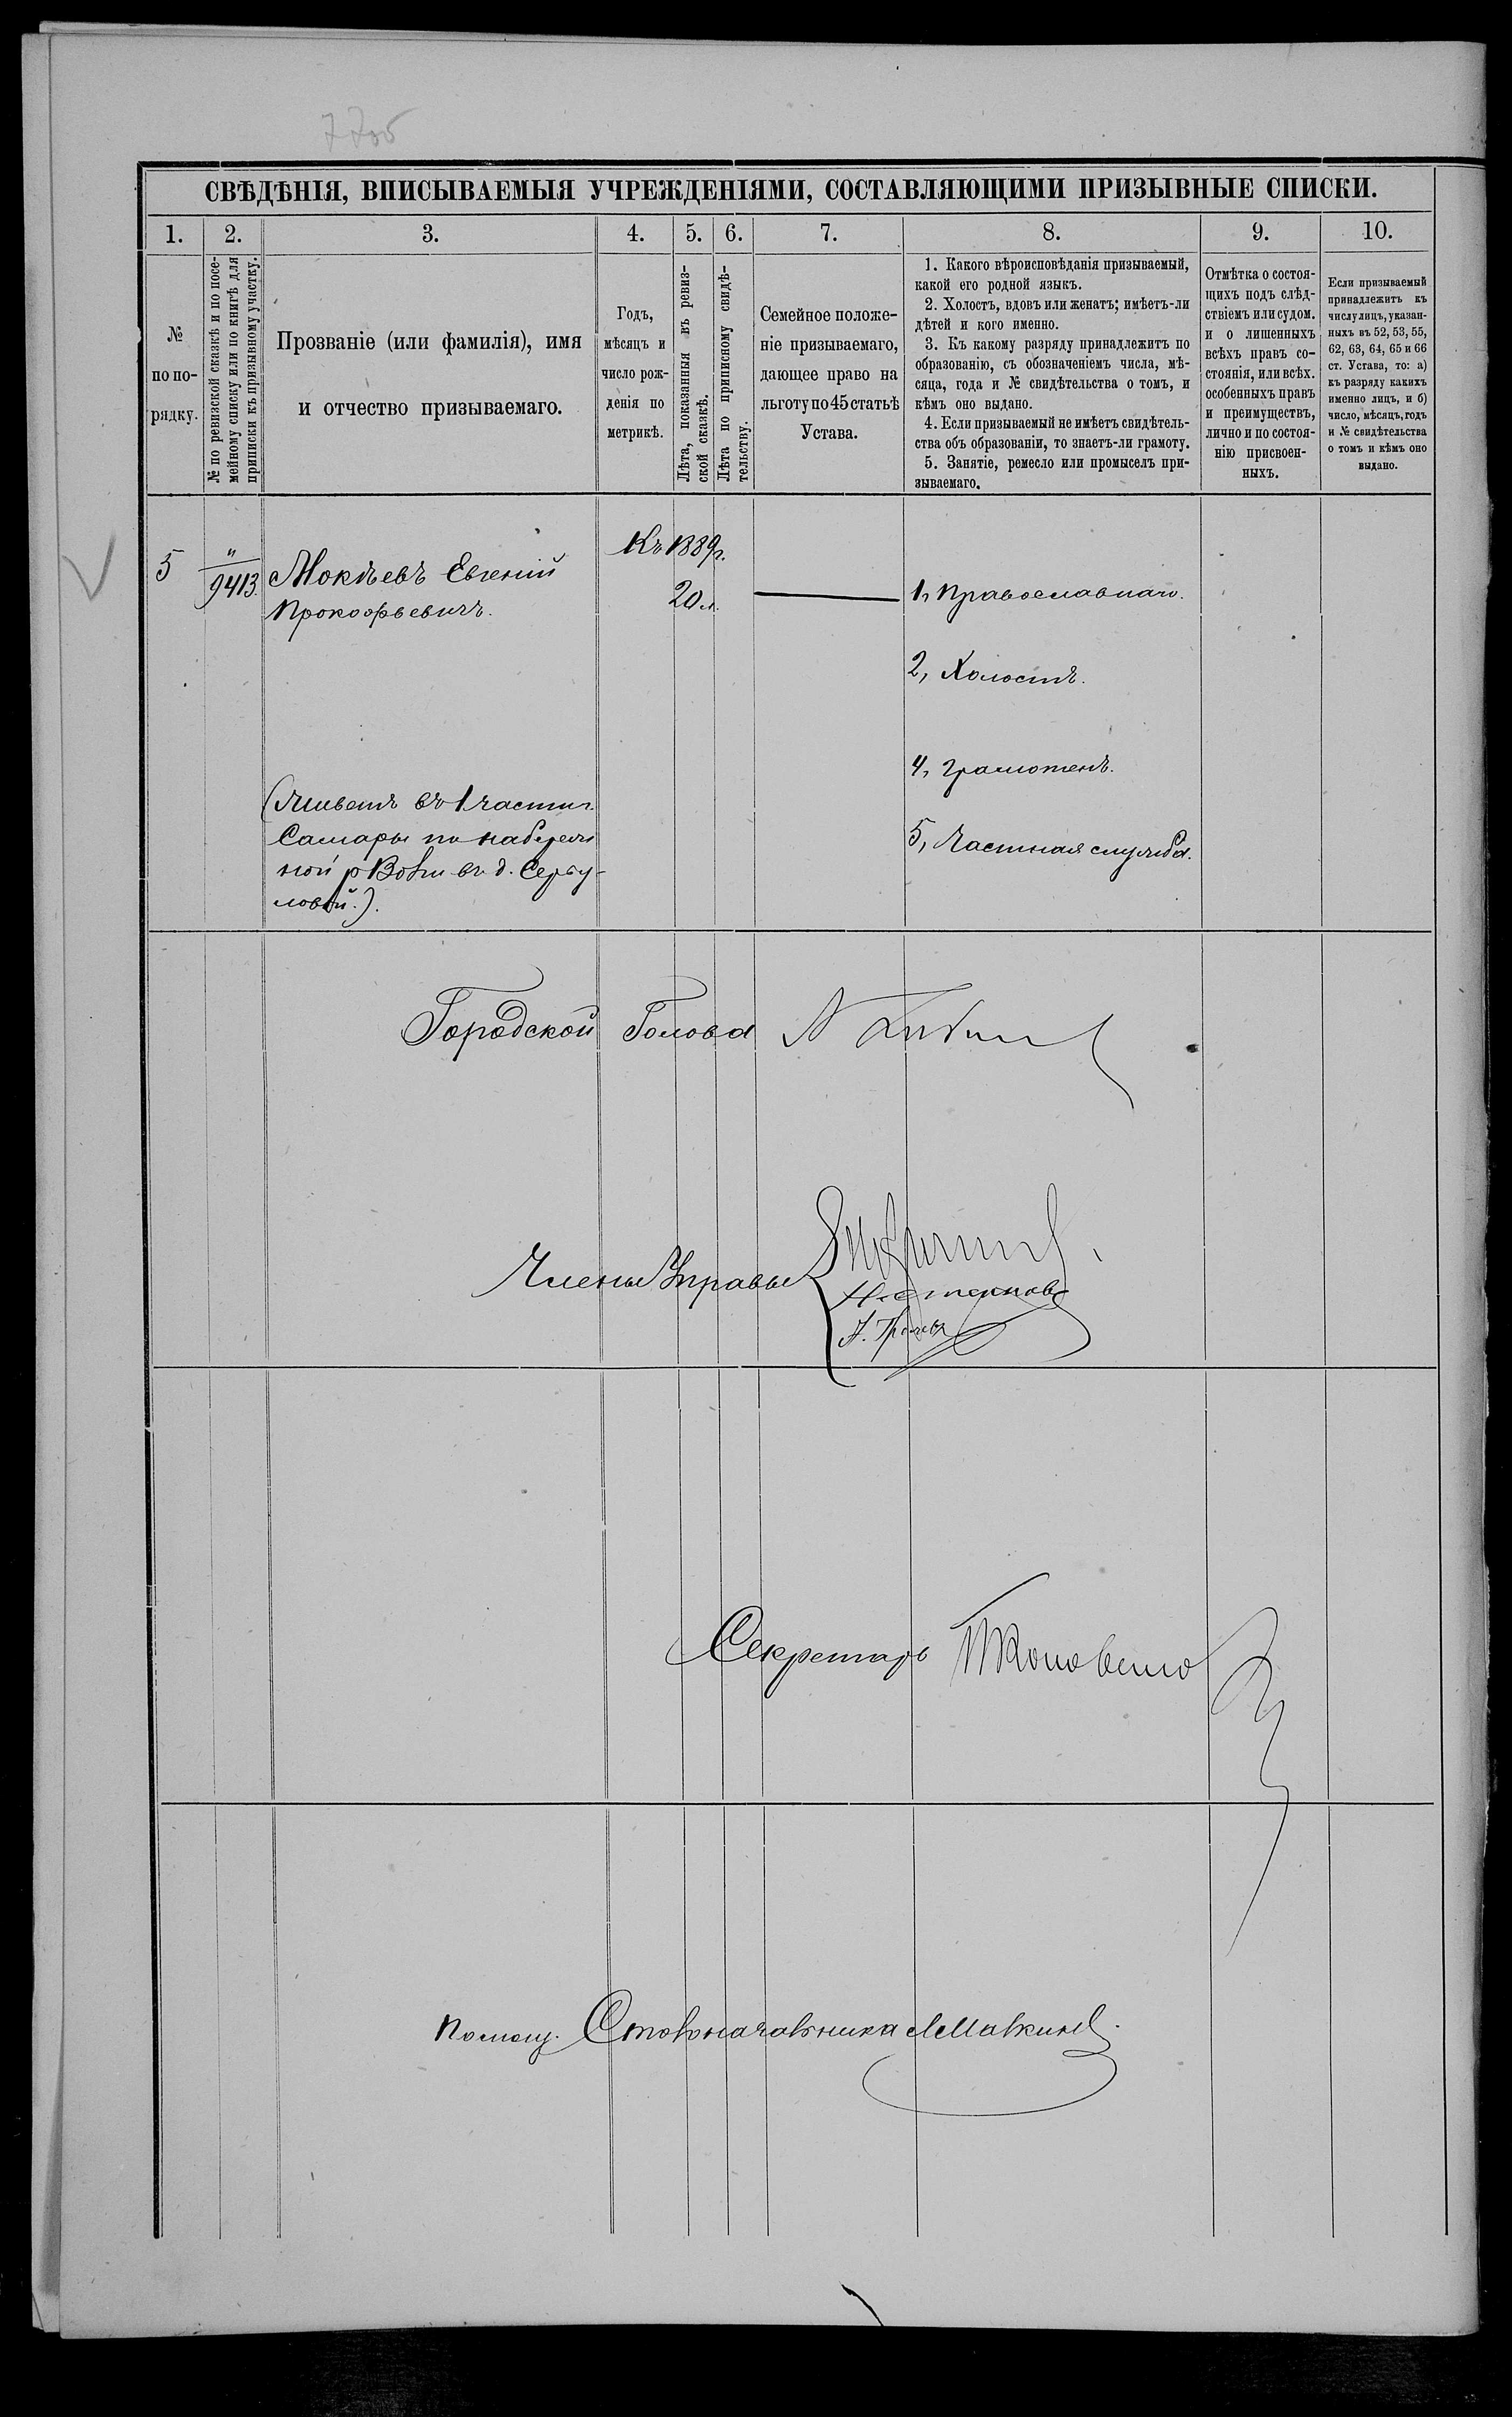 СВѢДѢНІЯ, ВПИСЫВАЕМЫЯ УЧРЕЖДЕНІЯМИ, СОСТАВЛЯЮЩИМИ ПРИЗЫВНЫЕ СПИСКИ.
1.
№
по по-
рядку.
2.
№ по ревизской сказкѣ и по посе-
мейному списку или по книгѣ для
приписки къ призывному участку.
3.
Прозваніе (или фамилія), имя
и отчество призываемаго.
4.
Годъ,
мѣсяцъ и
число рож-
денія по
метрикѣ.
5.
Лѣта, показанныя въ ревиз-
ской сказкѣ.
6.
Лѣта по приписному свидѣ-
тельству.
7.
Семейное положе-
ніе призываемаго,
дающее право на
льготу по 45 статьѣ
Устава.
8.
1. Какого вѣроисповѣданія призываемый,
какой его родной языкъ.
2. Холостъ, вдовъ или женатъ; имѣетъ-ли
дѣтей и кого именно.
3. Къ какому разряду принадлежитъ по
образованію, съ обозначеніемъ числа, мѣ-
сяца, года и № свидѣтельства о томъ, и
кѣмъ оно выдано.
4. Если призываемый не имѣетъ свидѣтель-
ства объ образованіи, то знаетъ-ли грамоту.
5. Занятіе, ремесло или промыселъ при-
зываемаго.
9.
Отмѣтка о состоя-
щихъ подъ слѣд-
ствіемъ или судом.
и о лишенныхъ
всѣхъ правъ со-
стоянія, или всѣх.
особенныхъ правъ
и преимуществъ,
лично и по состоя-
нію присвоен-
ныхъ.
10.
Если призываемый
принадлежитъ къ
числу лицъ, указан-
ныхъ въ 52, 53, 55,
62, 63, 64, 65 и 66
ст. Устава, то: а)
къ разряду какихъ
именно лицъ, и б)
число, мѣсяцъ, годъ
и № свидѣтельства
о томъ и кѣмъ оно
выдано.
5
"
9413.
Мокѣевъ Евгеній
Прокофьевичъ.
(Живетъ въ 1 части г.
Самары по набереж
ной р Волги въ д.
Къ 1889 г.
20 л.
1, Православнаго.
2, Холостъ.
4, Грамотенъ.
5, Частная служба.
Городской Голова
Члены Управы
Секретарь
Помощ. Столоначальника